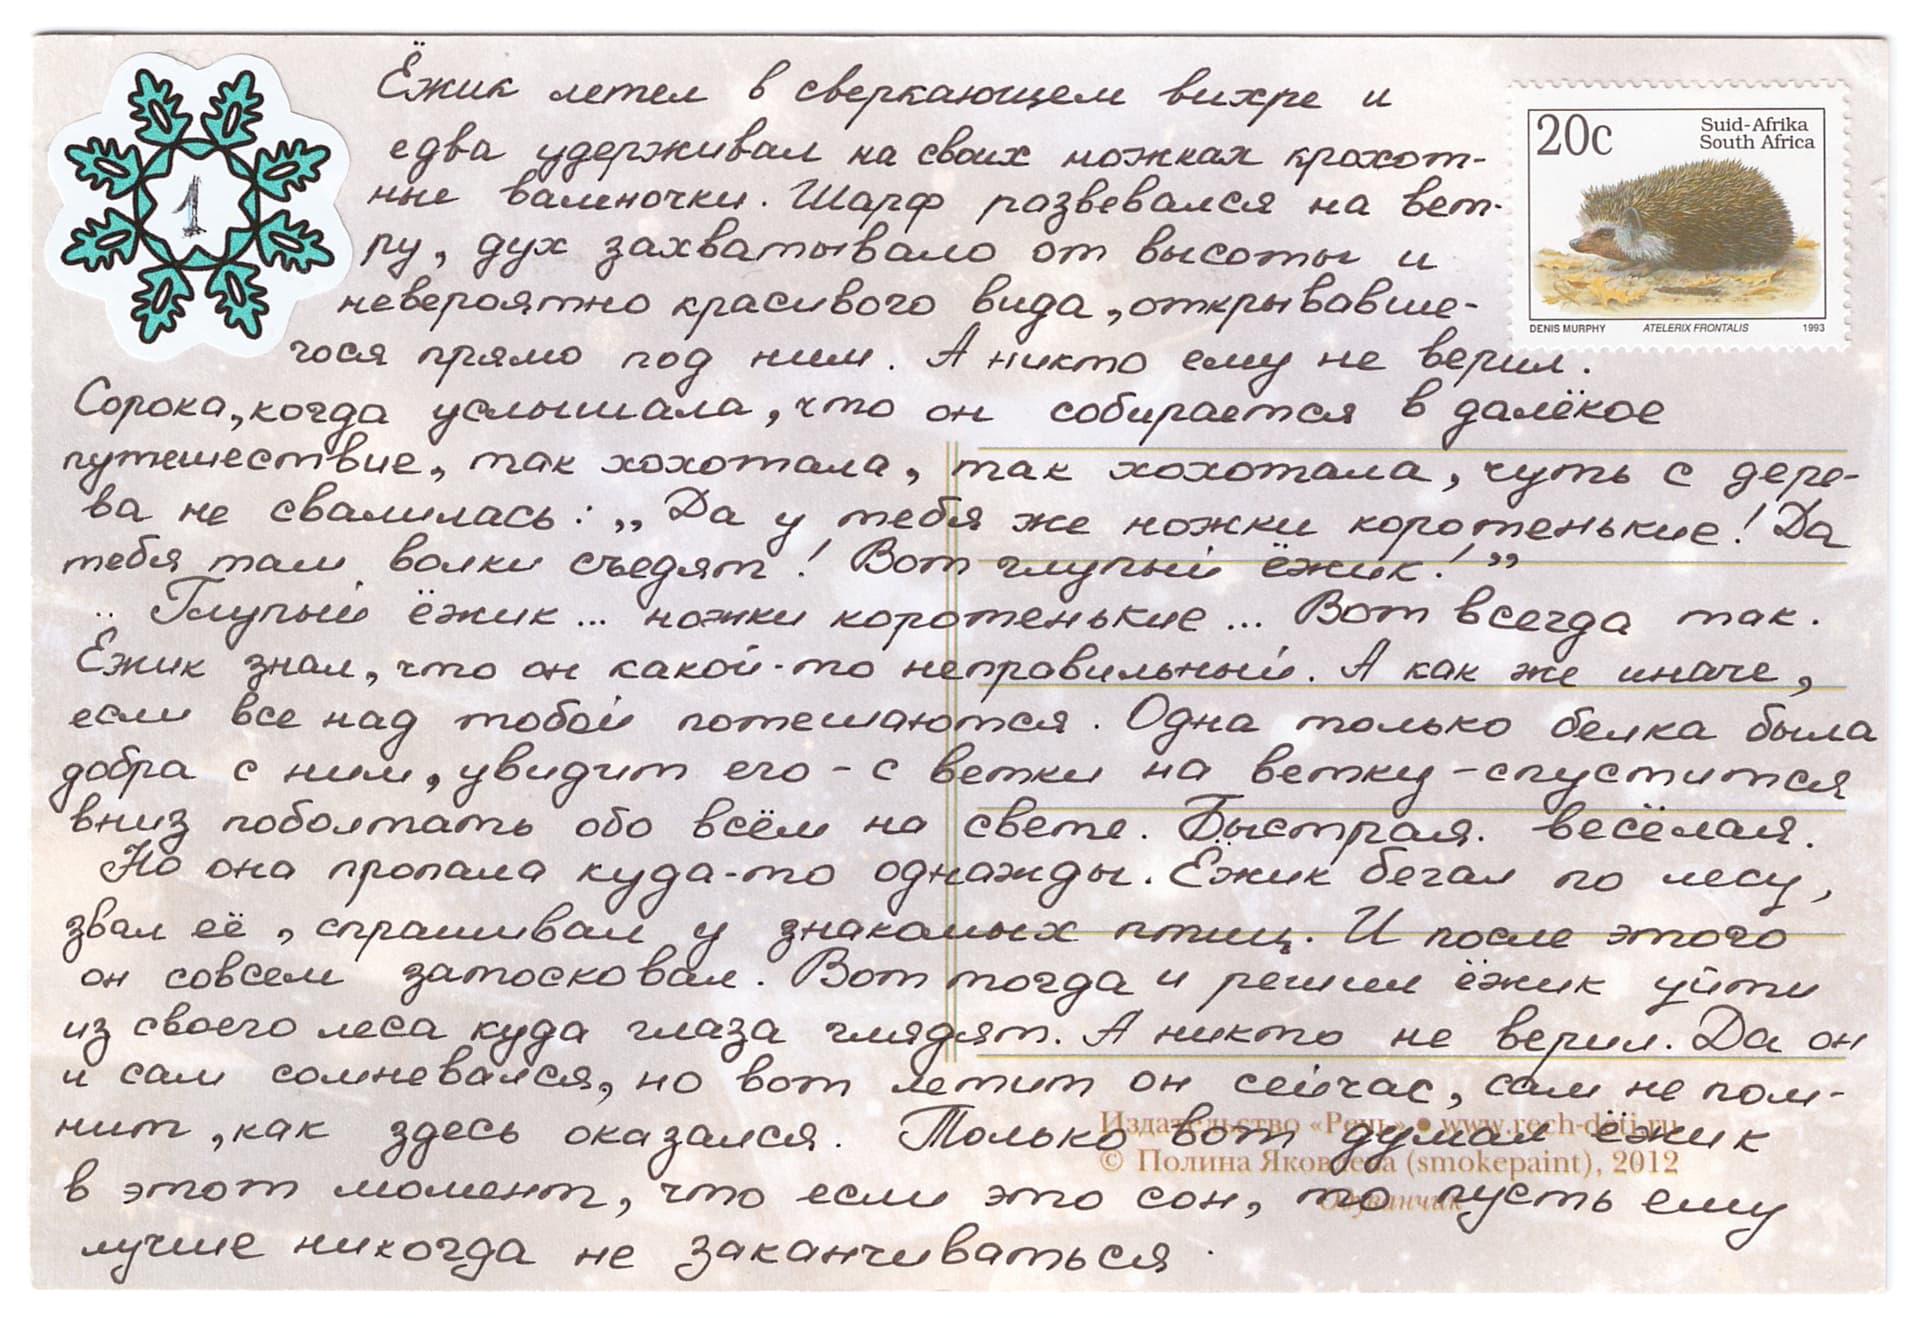 1
Ёжик летел в сверкающем вихре и
едва удерживал на своих ножках крохот-
ные валеночки. Шарф развевался на вет-
ру, дух захватывало от высоты и
невероятно красивого вида, открывавше-
гося прямо под ним. А никто ему не верил.
20c
Suid-Afrika
South Africa
DENIS MURPHY ATELERIX FRONTALIS 1993
Сорока, когда услышала, что он собирается в далёкое
путешествие, так хохотала, так хохотала, чуть с дере-
ва не свалилась: „Да у тебя же ножки коротенькие! Да
тебя там волки съедят! Вот глупый ёжик!”
Глупый ёжик... ножки коротенькие... Вот всегда так.
Ёжик знал, что он какой-то неправильный. А как же иначе,
если все над тобой потешаются. Одна только белка была
добра с ним, увидит его - с ветки на ветку - спустится
вниз поболтать обо всём на свете. Быстрая. весёлая.
Но она пропала куда-то однажды. Ёжик бегал по лесу,
звал её, спрашивал у знакомых птиц. И после этого
он совсем затосковал. Вот тогда и решил ёжик уйти
из своего леса куда глаза глядят. А никто не верил. Да он
и сам сомневался, но вот летит он сейчас, сам не пом-
нит, как здесь оказался. Только вот думал ёжик
в этот момент, что если это сон, то пусть ему
лучше никогда не заканчиваться.
Издательство «Речь» • www.rech-deti.ru
© Полина Яковлева (smokepaint), 2012
Одуванчик